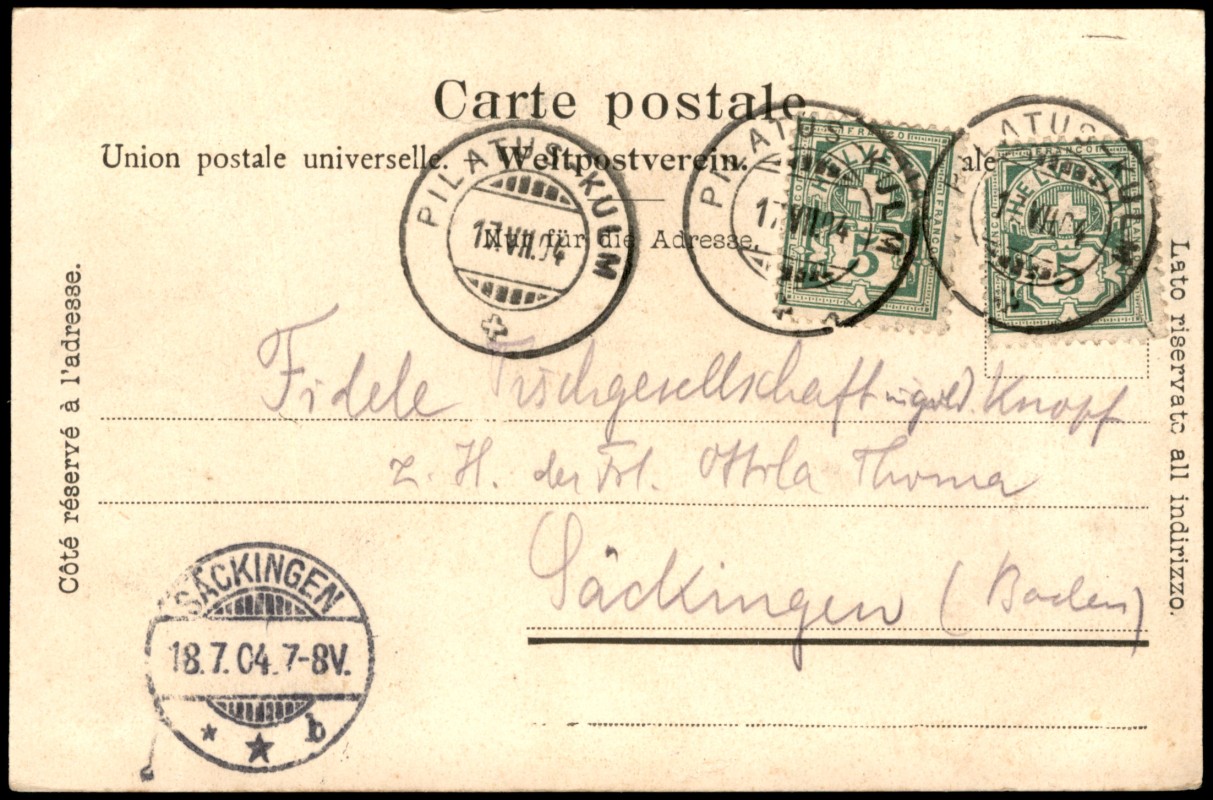 Carte postale
Union postale universelle. - Weltpostverein. ale
Nur für die Adresse.
Côté réservé à l'adresse.
Lato riservato all indirizzo.
PILATUS-KULM
17.VII.04
PILATUS-KULM
17.VII.04
PILATUS-KULM
VII.04
FRANCO
HELVETIA
FRANCO
5
FRANCO
HELVETIA
5
Fidele Tischgesellschaft Knopf
z. H. der Frl. Ottola Thoma
Säckingen (Baden)
SÄCKINGEN
18.7.04. 7-8V.
* ★ b